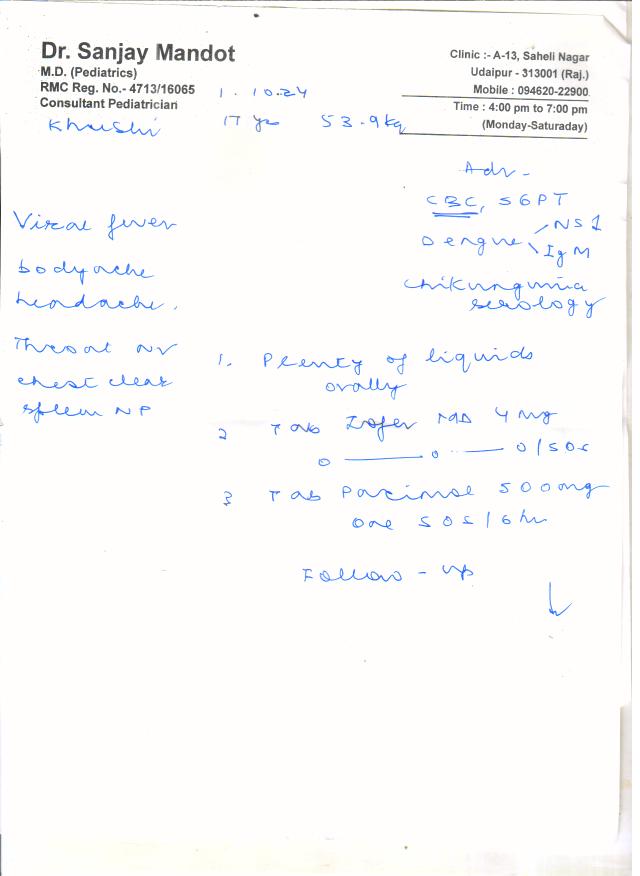 Dr. Sanjay Mandot
M.D. (Pediatrics)
RMC Reg. No.- 4713/16065
Consultant Pediatrician
Clinic :- A-13, Saheli Nagar
Udaipur - 313001 (Raj.)
Mobile : 094620-22900
Time : 4:00 pm to 7:00 pm
(Monday-Saturaday)
1.10.24
Khushi 17 yr 53.9kg
Adv -
CBC, SGPT
Dengue NS1
IgM
Chikungunia
serology
Viral fever
bodyache
headache.
Throat
chest clear
spleen NP
1. Plenty of liquids
orally
2 Tab Zofer 4 mg
0 —— 0 —— 0/SOS
3 Tab Pacimol 500mg
one SOS/6 hr
Follow-up